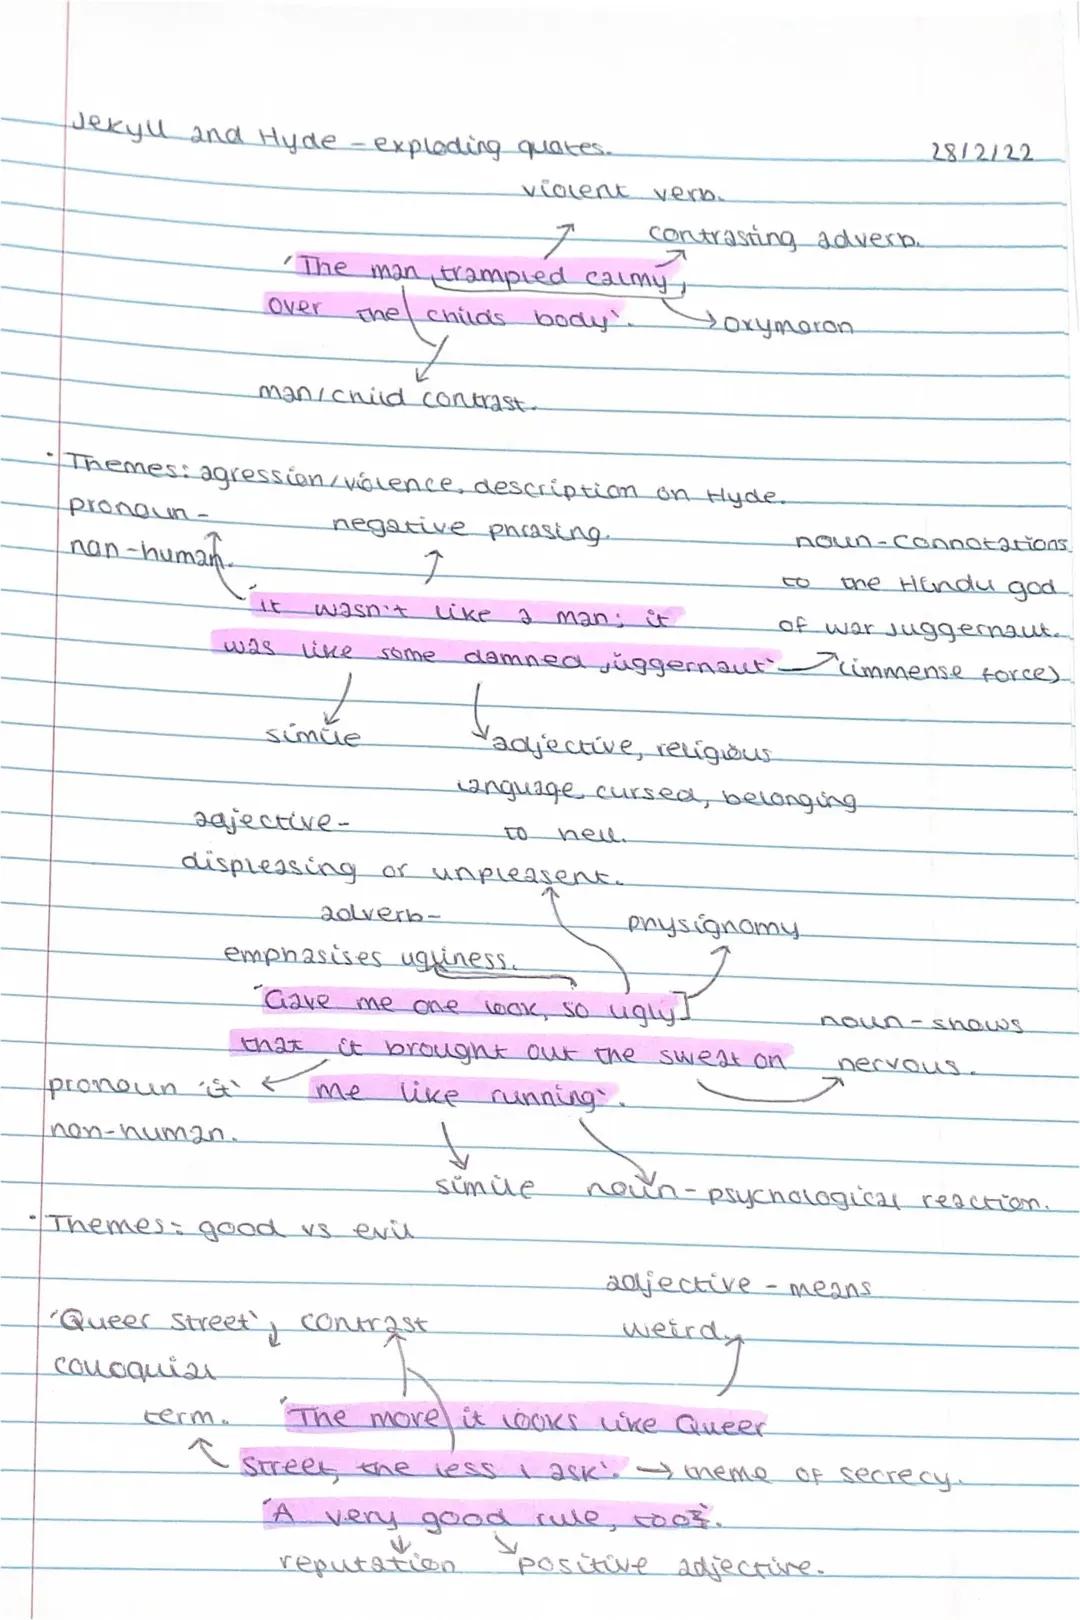 Jekyll and Hyde - exploding quotes.
28/2/22
violent verb.
contrasting adverb.
'The man trampled calmy,
over the childs body'.
→ oxymoron
man/child contrast.
• Themes: agression/violence, description on Hyde.
pronoun -
non-human.
negative phrasing.
noun - connotations
to the Hindu god
of war Juggernaut.
(immense force)
'it wasn't like a man; it
was like some damned juggernaut'
simile
adjective, religious
language, cursed, belonging
to hell.
adjective -
displeasing or unpleasent.
adverb -
emphasises ugliness.
physignomy
'Gave me one look, so ugly]
that it brought out the sweat on
me like running'.
noun - shows
nervous.
pronoun 'it'
non-human.
simile
noun - psychological reaction.
• Themes: good vs evil
adjective - means
weird.
'Queer Street', contrast
colloquial
term.
'The more it looks like Queer
Street, the less I ask'. → theme of secrecy.
'A very good rule, too'.
reputation
positive adjective.